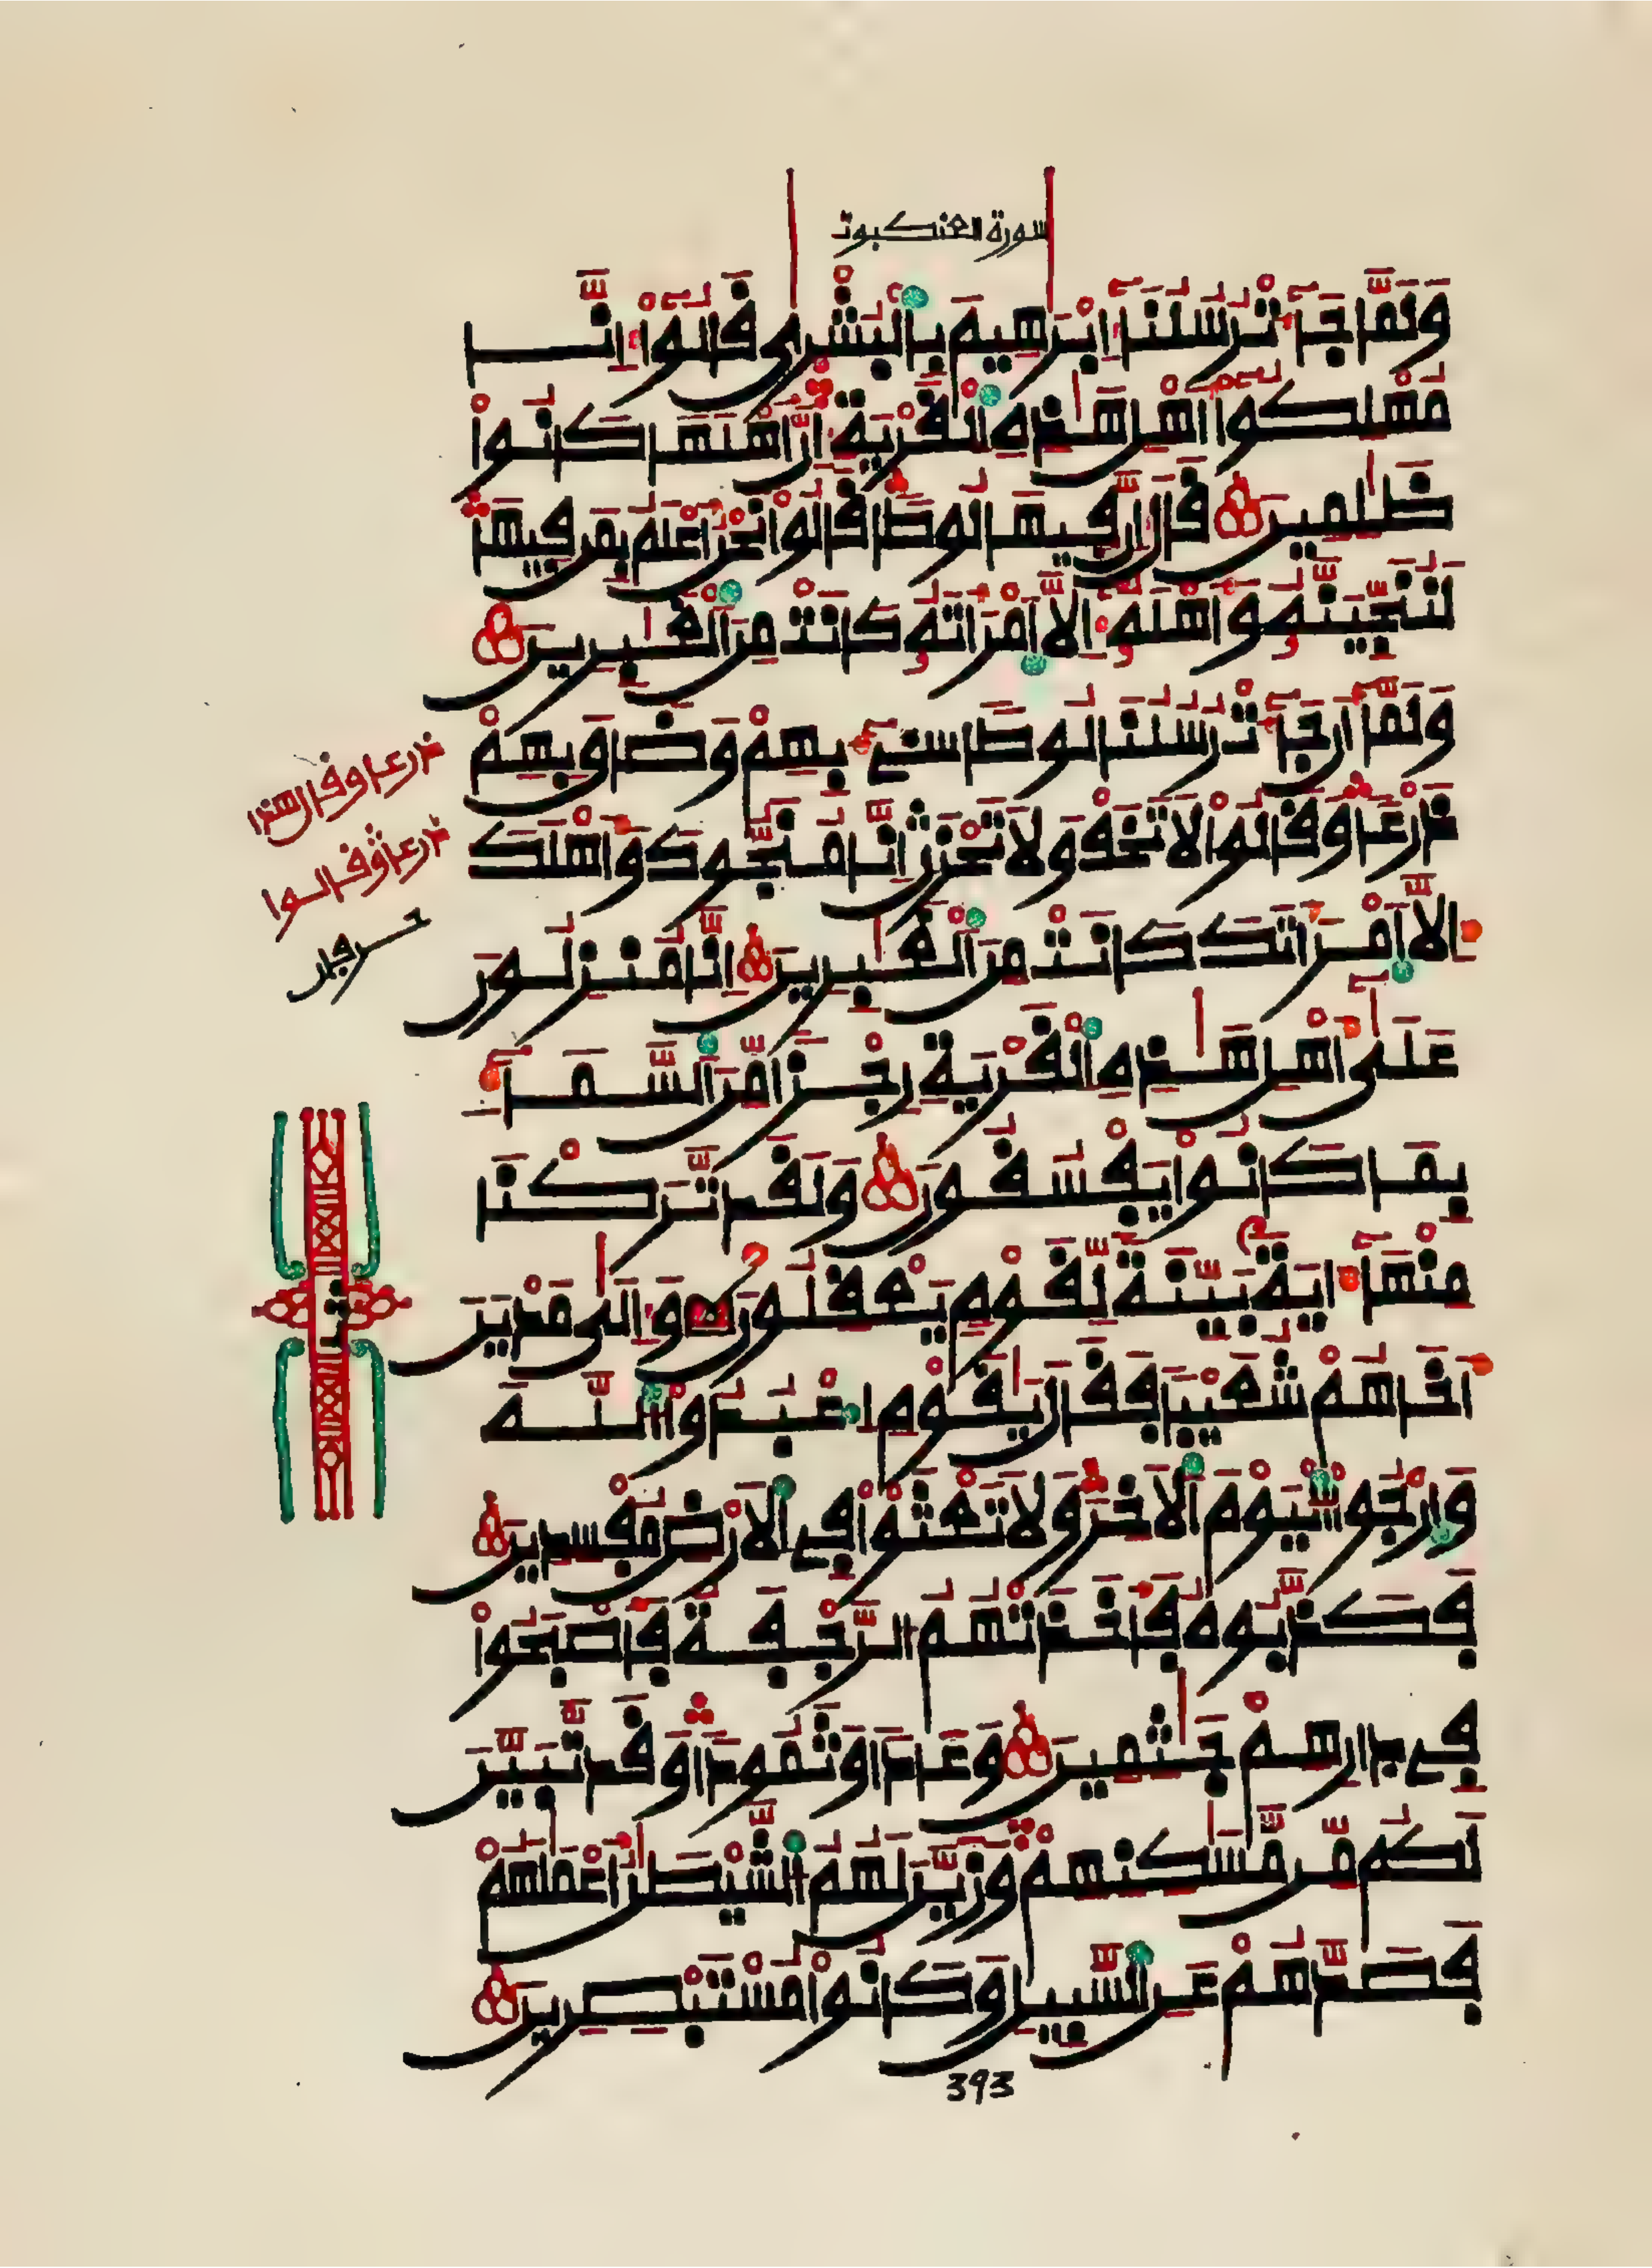 سورة العنكبوت
وَلَمَّا جَآءَتْ رُسُلُنَآ إِبْرَٰهِيمَ بِٱلْبُشْرَىٰ قَالُوٓا۟ إِنَّا
مُهْلِكُوٓا۟ أَهْلِ هَٰذِهِ ٱلْقَرْيَةِ إِنَّ أَهْلَهَا كَانُوا۟
ظَٰلِمِينَ قَالَ إِنَّ فِيهَا لُوطًا قَالُوا۟ نَحْنُ أَعْلَمُ بِمَن فِيهَا
لَنُنَجِّيَنَّهُۥ وَأَهْلَهُۥٓ إِلَّا ٱمْرَأَتَهُۥ كَانَتْ مِنَ ٱلْغَٰبِرِينَ
وَلَمَّآ أَن جَآءَتْ رُسُلُنَا لُوطًا سِىٓءَ بِهِمْ وَضَاقَ بِهِمْ
ذَرْعًا وَقَالُوا۟ لَا تَخَفْ وَلَا تَحْزَنْ إِنَّا مُنَجُّوكَ وَأَهْلَكَ
إِلَّا ٱمْرَأَتَكَ كَانَتْ مِنَ ٱلْغَٰبِرِينَ إِنَّا مُنزِلُونَ
عَلَىٰٓ أَهْلِ هَٰذِهِ ٱلْقَرْيَةِ رِجْزًا مِّنَ ٱلسَّمَآءِ
بِمَا كَانُوا۟ يَفْسُقُونَ وَلَقَد تَّرَكْنَا
مِنْهَآ ءَايَةًۢ بَيِّنَةً لِّقَوْمٍ يَعْقِلُونَ وَإِلَىٰ مَدْيَنَ
أَخَاهُمْ شُعَيْبًا فَقَالَ يَٰقَوْمِ ٱعْبُدُوا۟ ٱللَّهَ
وَٱرْجُوا۟ ٱلْيَوْمَ ٱلْأَخِرَ وَلَا تَعْثَوْا۟ فِى ٱلْأَرْضِ مُفْسِدِينَ
فَكَذَّبُوهُ فَأَخَذَتْهُمُ ٱلرَّجْفَةُ فَأَصْبَحُوا۟
فِى دَارِهِمْ جَٰثِمِينَ وَعَادًا وَثَمُودًا وَقَد تَّبَيَّنَ
لَكُم مِّن مَّسَٰكِنِهِمْ وَزَيَّنَ لَهُمُ ٱلشَّيْطَٰنُ أَعْمَٰلَهُمْ
فَصَدَّهُمْ عَنِ ٱلسَّبِيلِ وَكَانُوا۟ مُسْتَبْصِرِينَ
ذرعا وقالوا
ثمن
393